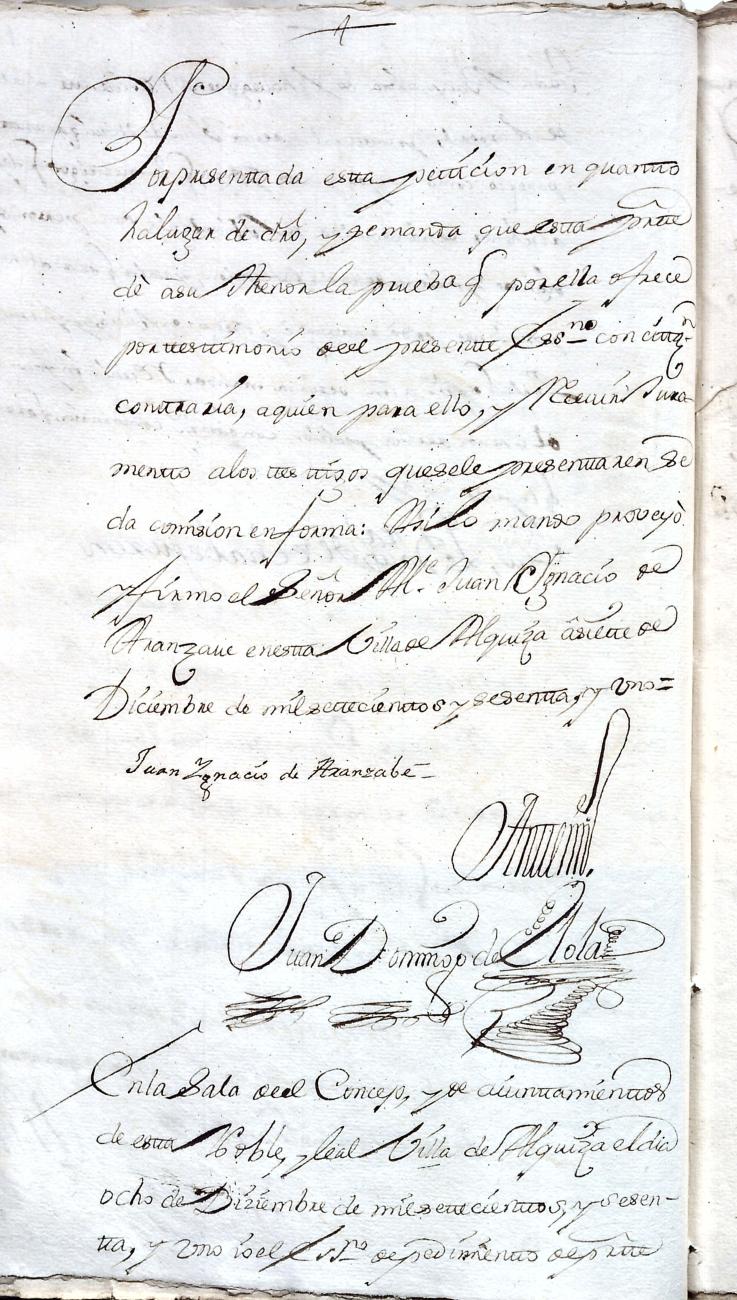 Por presentada esta peticion en quanto
ha lugar de dro, y se manda que esta parte
dè a su thenor la prueba q por ella ofrece
por testimonio deel presente Essno con citazn
contraria, a quien para ello, y Recivir Jura-
mento a los testigos que se le presentaren se
da comision en forma: Asi lo mando proveyò
y firmo el Señor Alce Juan Ignacio de
Aranzave en esta Villa de Alquiza à siette de
Diciembre de mil settecienttos y sesenta, y uno=
Juan Ygnacio de Aranzabe
Antemi
Juan Domingo de Olola
En la Sala deel Concejo, y de aiuntamienttos
de esta Noble, y leal Villa de Alquiza el dia
ocho de Diziembre de mil settecienttos, y sesen-
ta, y uno io el Essno de pedimento de parte